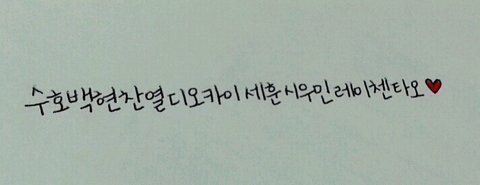 수호백현찬열디오카이세훈시우민레이첸타오♥